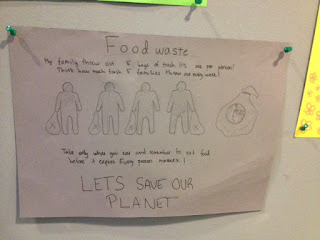 Food waste
My family throw out 5 bags of trash. It's one per person!
Think how much trash 5 families throw out every week!
Take only what you can and remember to eat food
before it expires. Every person matters!
LETS SAVE OUR
PLANET